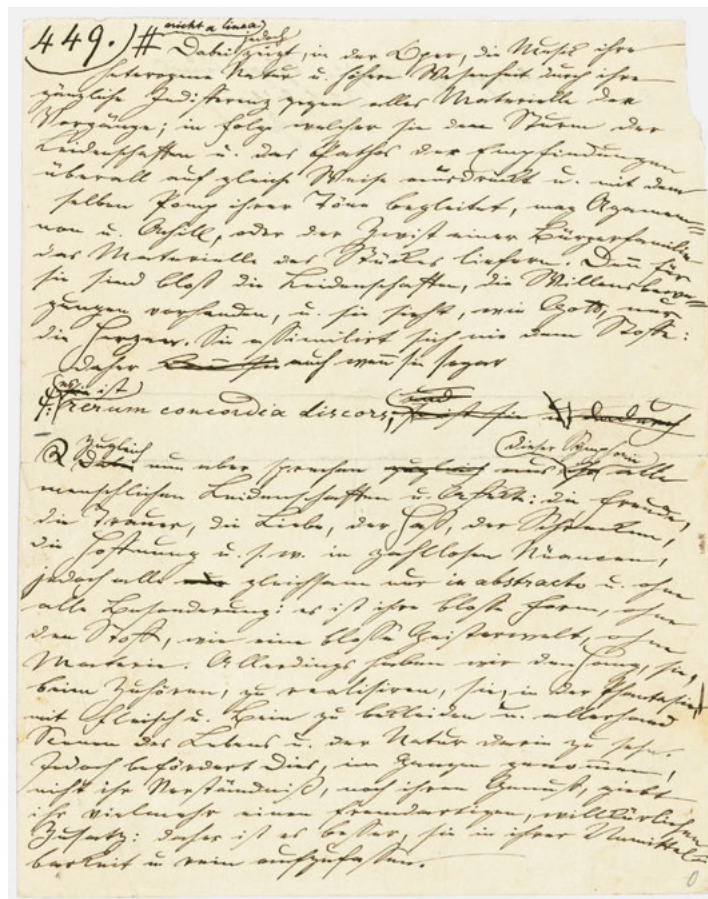 nicht a linea
449.) # Dabei zeigt jedoch, in der Oper, die Musik ihre
heterogene Natur u. höhere Wesenheit durch ihre
gänzliche Indifferenz gegen alles Materielle der
Vorgänge; in Folge welcher sie den Sturm der
Leidenschaften u. das Pathos der Empfindungen
überall auf gleiche Weise ausdrückt u. mit dem
selben Pomp ihrer Töne begleitet, mag Agamem=
non u. Achill, oder der Zwist einer Bürgerfamilie
das Materielle des Stückes liefern. Denn für
sie sind bloß die Leidenschaften, die Willensbewe=
gungen vorhanden, u. sie sieht, wie Gott, nur
die Herzen. Sie assimilirt sich nie dem Stoffe:
daher auch wenn sie sogar
ist
rerum concordia discors, und
Zugleich dieser Symphonie
nun aber sprechen zugleich aus alle
menschlichen Leidenschaften u. Affekte: die Freude,
die Trauer, die Liebe, der Haß, der Schrecken,
die Hoffnung u. s. w. in zahllosen Nüancen,
jedoch alle gleichsam nur in abstracto u. ohne
alle Besonderung: es ist ihre bloße Form, ohne
den Stoff, wie eine bloße Geisterwelt, ohne
Materie. Allerdings haben wir den Hang, sie,
beim Zuhören, zu realisiren, sie, in der Phantasie,
mit Fleisch u. Bein zu bekleiden u. allerhand
Scenen des Lebens u. der Natur darin zu sehn.
Jedoch befördert Dies, im Ganzen genommen,
nicht ihr Verständniß, noch ihren Genuß, giebt
ihr vielmehr einen fremdartigen, willkürlichen
Zusatz: daher ist es besser, sie in ihrer Unmittel=
barkeit u. rein aufzufassen.